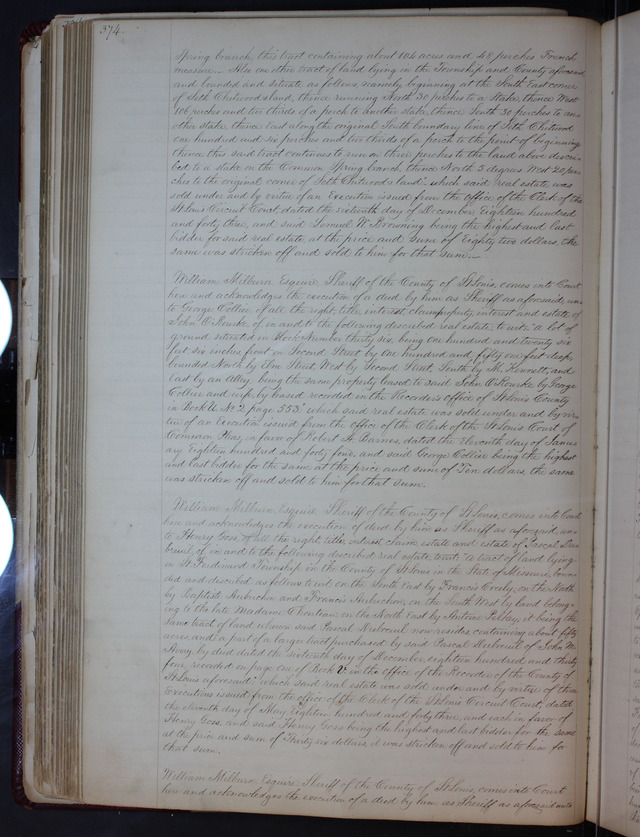 374
Spring branch, this tract containing about 104 acres and 48 perches French
measure. Also one other tract of land lying in the Township and County aforesaid
and bounded and situate as follows, namely, beginning at the South East corner
of Seth Chitwoods land, thence running North 30 perches to a Stake, thence West
106 perches and two thirds of a perch to another stake, thence South 30 perches to ano
other stake, thence East along the original South boundary line of Seth Chitwood
one hundred and six perches and two thirds of a perch to the point of beginning
thence this said tract continues to run on three perches to the land above descri
bed to a stake on the Common Spring branch, thence North 5 degrees West 20 per
ches to the original corner of Seth Chitwoods land" which said real estate was
sold under and by virtue of an Execution issued from the office of the Clerk of the
St Louis Circuit Court, dated the sixteenth day of December Eighteen hundred
and forty three, and said Samuel W. Browning being the highest and last
bidder for said real estate at the price and sum of Eighty two dollars, the
same was stricken off and sold to him for that sum.
William Milburn Esquire Sheriff of the County of St Louis, comes into Court
here and acknowledges the execution of a deed by him as Sheriff as aforesaid, un
to George Collier of all the right, title, interest, claim, property, interest and estate of
John O'Rourke of in and to the following described real estate, to wit: "a lot of
ground situated in Block number thirty six, being one hundred and twenty six
feet six inches front on Second Street by one hundred and fifty one feet deep,
bounded North by Elm Street, West by Second Street, South by M. Kennett, and
East by an Alley, being the same property leased to said John O'Rourke by George
Collier and wife, by leased recorded in the Recorders office of St Louis County
in Book U. No 2, page 553," which said real estate was sold under and by vir
tue of an Execution issued from the Office of the Clerk of the St Louis Court of
Common Pleas, in favor of Robert A. Barnes, dated the Eleventh day of Janu
ary Eighteen hundred and forty four, and said George Collier being the highest
and last bidder for the same at the price and sum of Ten dollars, the same
was stricken off and sold to him for that sum.
William Milburn, Esquire, Sheriff of the County of St Louis, comes into Court
here and acknowledges the execution of deed by him as Sheriff as aforesaid, un
to Henry Goss, of all the right, title, interest, claim, estate and estate of Pascal
of in and to the following described real estate, to wit: "a tract of land lying
in St Ferdinand Township in the County of St Louis in the State of Missouri, boun
ded and described as follows to wit: on the South East by Francis Creely, on the North
by Baptiste Aubuchon and Francis Aubuchon, on the South West by land belong
ing to the late Madame Chouteau, on the North East by Antoine, it being the
same tract of land whereon said Pascal now resides, containing about fifty
acres and a part of a larger tract purchased by said Pascal of John M.
by deed dated the sixteenth day of December, eighteen hundred and thirty
four, recorded on page One of Book V. in the office of the Recorder of the County of
St Louis aforesaid," which said real estate was sold under and by virtue of three
Executions issued from the office of the Clerk of the St Louis Circuit Court, dated
the eleventh day of May, Eighteen hundred and forty three, and each in favor of
Henry Goss, and said Henry Goss being the highest and last bidder for the same
at the price and sum of Thirty six dollars, it was stricken off and sold to him for
that sum.
William Milburn, Esquire, Sheriff of the County of St Louis, comes into Court
here and acknowledges the execution of a deed by him as Sheriff as aforesaid unto